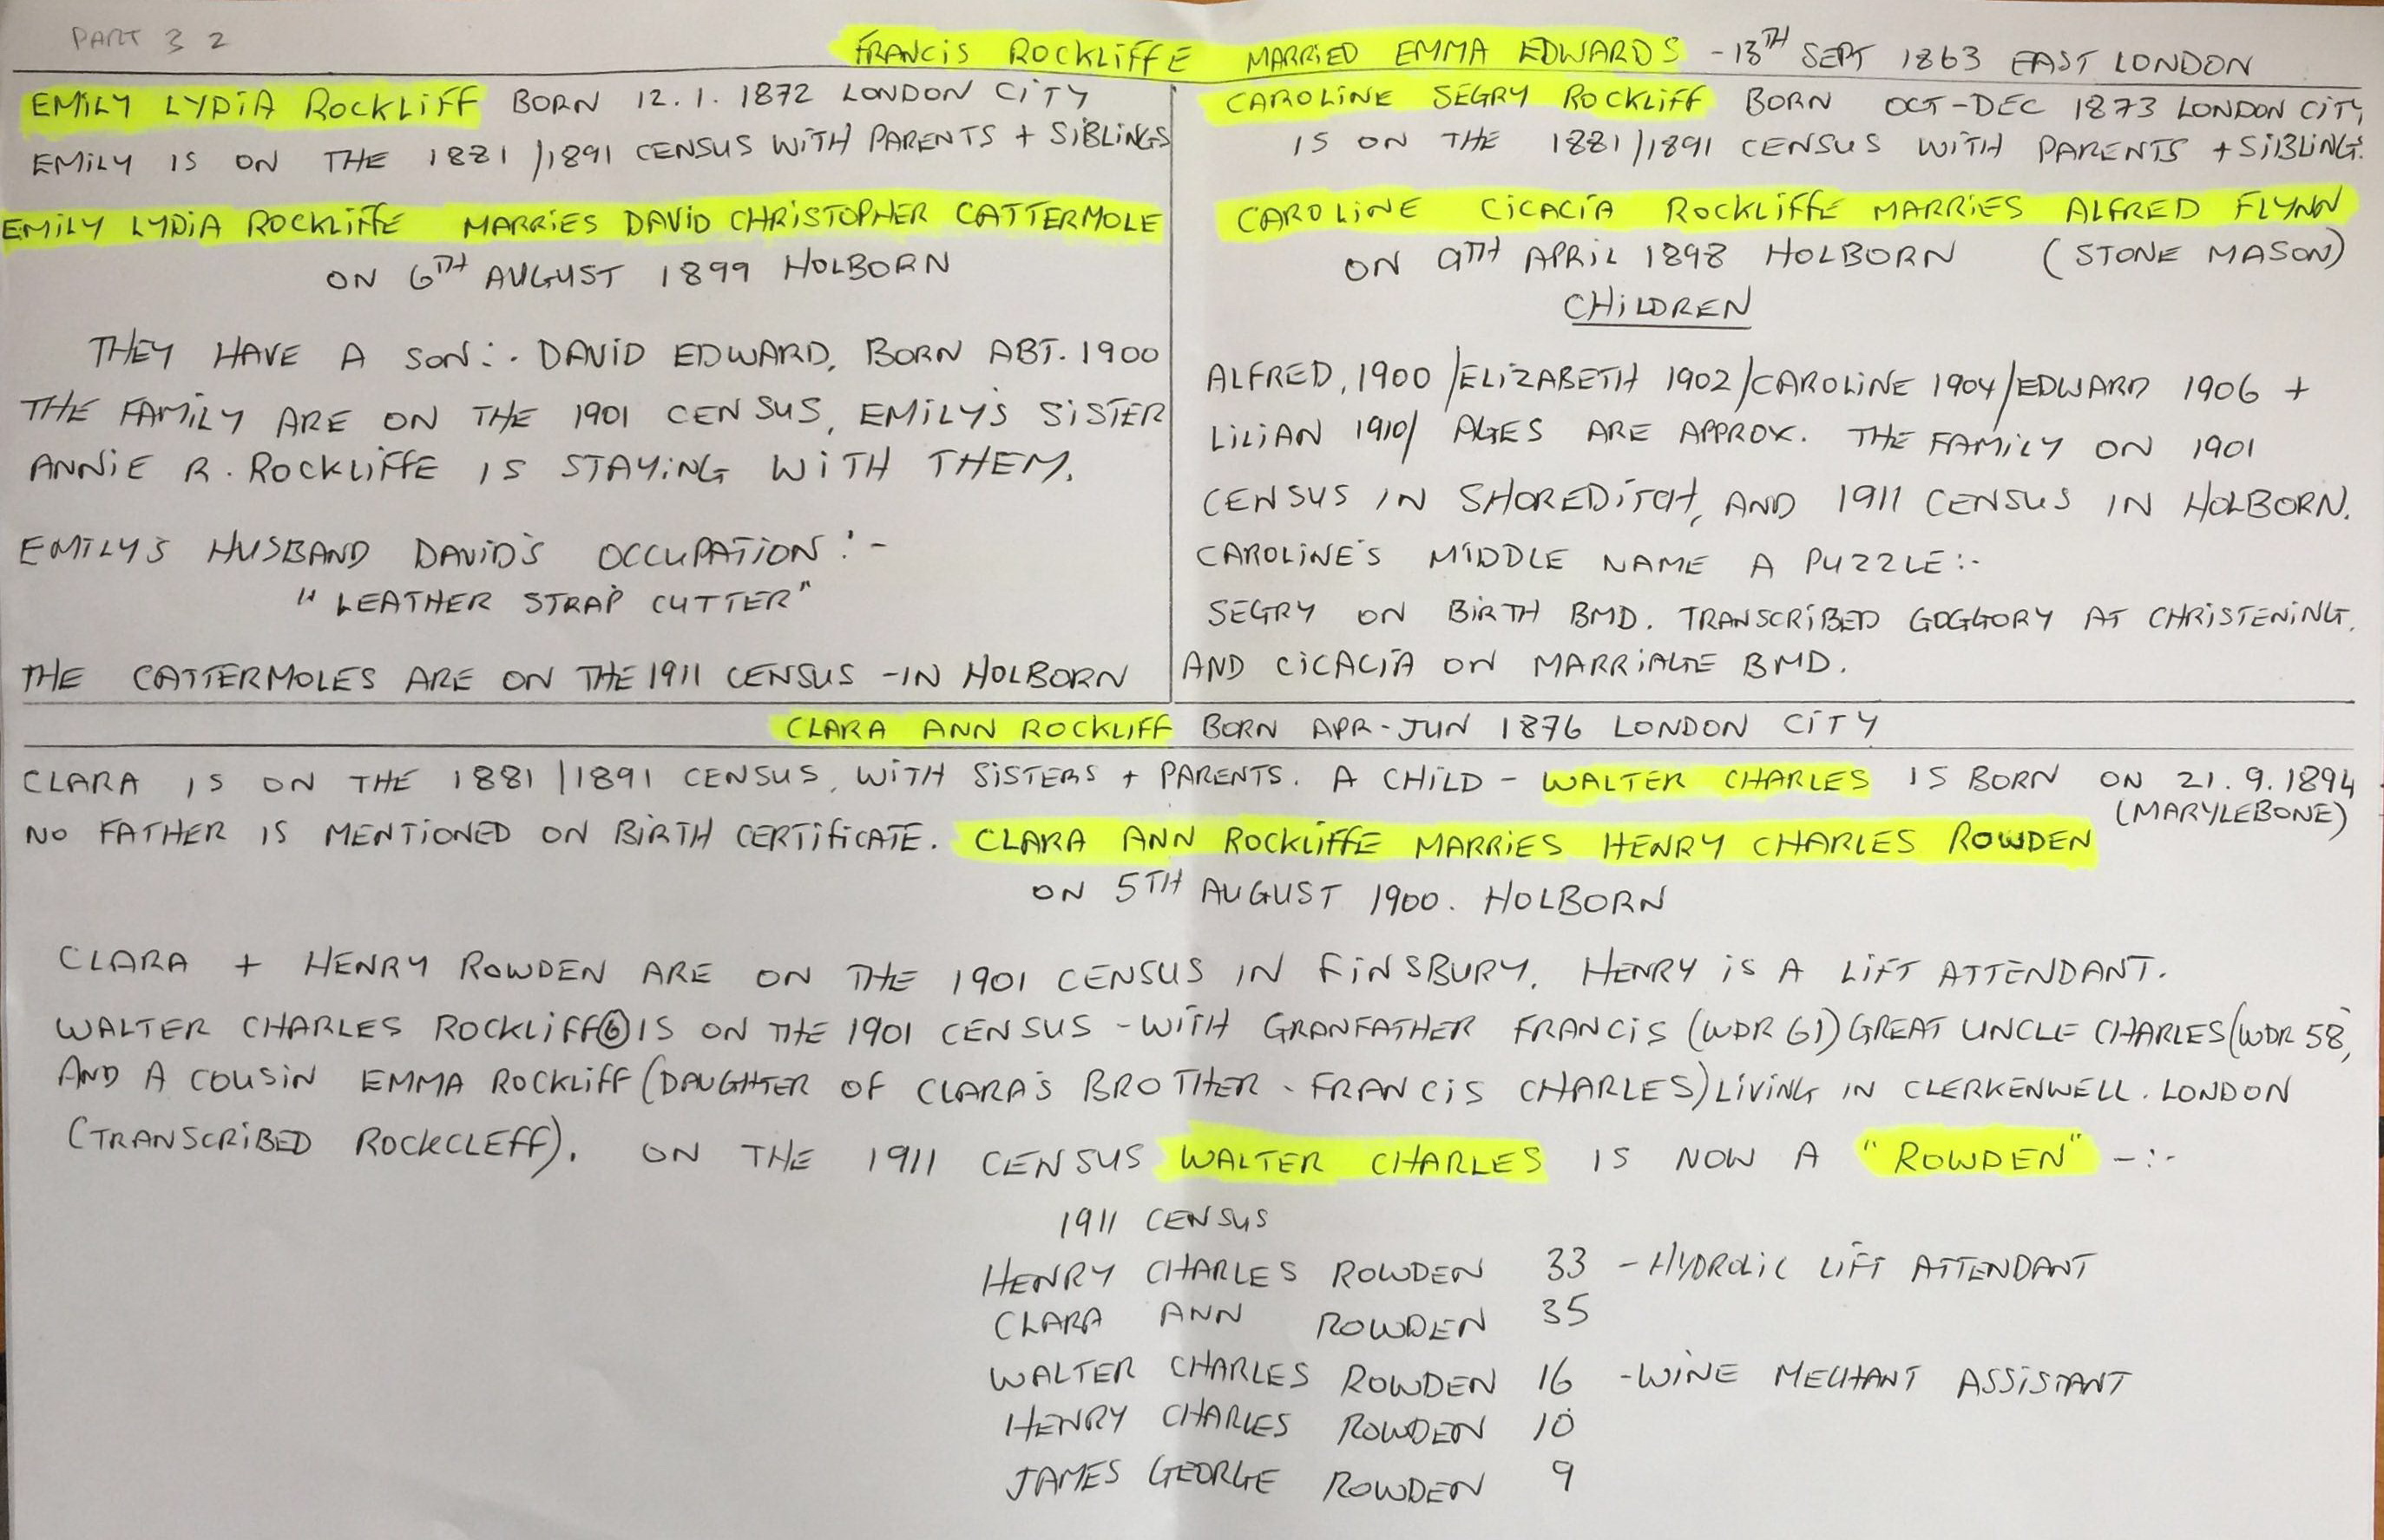 PART 3 2
FRANCIS ROCKLIFFE MARRIED EMMA EDWARDS - 13TH SEPT 1863 EAST LONDON
EMILY LYDIA ROCKLIFF BORN 12.1.1872 LONDON CITY
EMILY IS ON THE 1881/1891 CENSUS WITH PARENTS + SIBLINGS
EMILY LYDIA ROCKLIFFE MARRIES DAVID CHRISTOPHER CATTERMOLE
ON 6TH AUGUST 1899 HOLBORN
THEY HAVE A SON:. DAVID EDWARD, BORN ABT. 1900
THE FAMILY ARE ON THE 1901 CENSUS, EMILY'S SISTER
ANNIE R. ROCKLIFFE IS STAYING WITH THEM.
EMILY'S HUSBAND DAVID'S OCCUPATION :-
"LEATHER STRAP CUTTER"
THE CATTERMOLES ARE ON THE 1911 CENSUS - IN HOLBORN
CAROLINE SEGRY ROCKLIFF BORN OCT-DEC 1873 LONDON CITY
IS ON THE 1881/1891 CENSUS WITH PARENTS + SIBLING.
CAROLINE CICACIA ROCKLIFFE MARRIES ALFRED FLYNN
ON 9TH APRIL 1898 HOLBORN (STONE MASON)
CHILDREN
ALFRED, 1900 /ELIZABETH 1902/CAROLINE 1904/EDWARD 1906 +
LILIAN 1910/ AGES ARE APPROX. THE FAMILY ON 1901
CENSUS IN SHOREDITCH, AND 1911 CENSUS IN HOLBORN.
CAROLINE'S MIDDLE NAME A PUZZLE:-
SEGRY ON BIRTH BMD. TRANSCRIBED GOGGORY AT CHRISTENING.
AND CICACIA ON MARRIAGE BMD.
CLARA ANN ROCKLIFF BORN APR-JUN 1876 LONDON CITY
CLARA IS ON THE 1881/1891 CENSUS, WITH SISTERS + PARENTS. A CHILD - WALTER CHARLES IS BORN ON 21.9.1894
(MARYLEBONE)
NO FATHER IS MENTIONED ON BIRTH CERTIFICATE. CLARA ANN ROCKLIFFE MARRIES HENRY CHARLES ROWDEN
ON 5TH AUGUST 1900. HOLBORN
CLARA + HENRY ROWDEN ARE ON THE 1901 CENSUS IN FINSBURY. HENRY IS A LIFT ATTENDANT.
WALTER CHARLES ROCKLIFF (6) IS ON THE 1901 CENSUS - WITH GRANFATHER FRANCIS (WDR 61) GREAT UNCLE CHARLES (WDR 58,
AND A COUSIN EMMA ROCKLIFF (DAUGHTER OF CLARA'S BROTHER - FRANCIS CHARLES) LIVING IN CLERKENWELL. LONDON
(TRANSCRIBED ROCKCLEFF). ON THE 1911 CENSUS WALTER CHARLES IS NOW A "ROWDEN" -:-
1911 CENSUS
HENRY CHARLES ROWDEN 33 - HYDROLIC LIFT ATTENDANT
CLARA ANN ROWDEN 35
WALTER CHARLES ROWDEN 16 - WINE MECHANT ASSISTANT
HENRY CHARLES ROWDEN 10
JAMES GEORGE ROWDEN 9